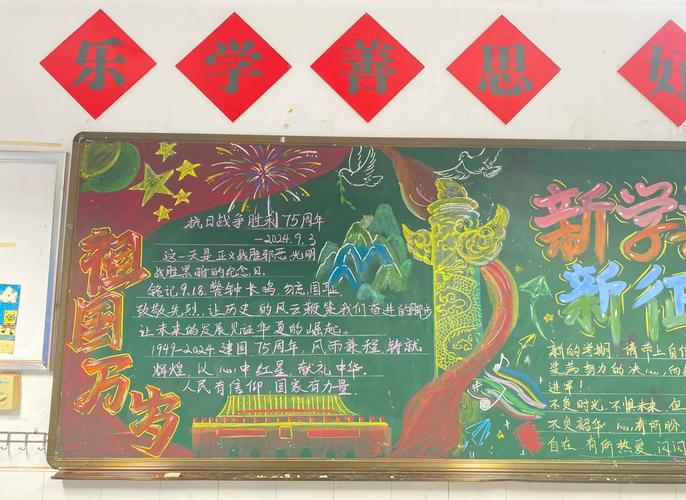 乐学善思好
祖国万岁
抗日战争胜利75周年
—2024.9.3
这一天是正义战胜邪恶,光明
战胜黑暗的纪念日.
铭记9.18,警钟长鸣,勿忘国耻.
致敬先烈,让历史的风云鞭策我们奋进的脚步
让未来的发展见证华夏的崛起.
1949-2024 建国75周年,风雨兼程,铸就
辉煌,以心中红星,献礼中华.
人民有信仰,国家有力量.
新学
新征
新的学期,请带上自信
装满努力的决心,向
进军!
不负时光,不惧未来,但
不负韶华,心有所盼
自在,有所热爱,闪闪